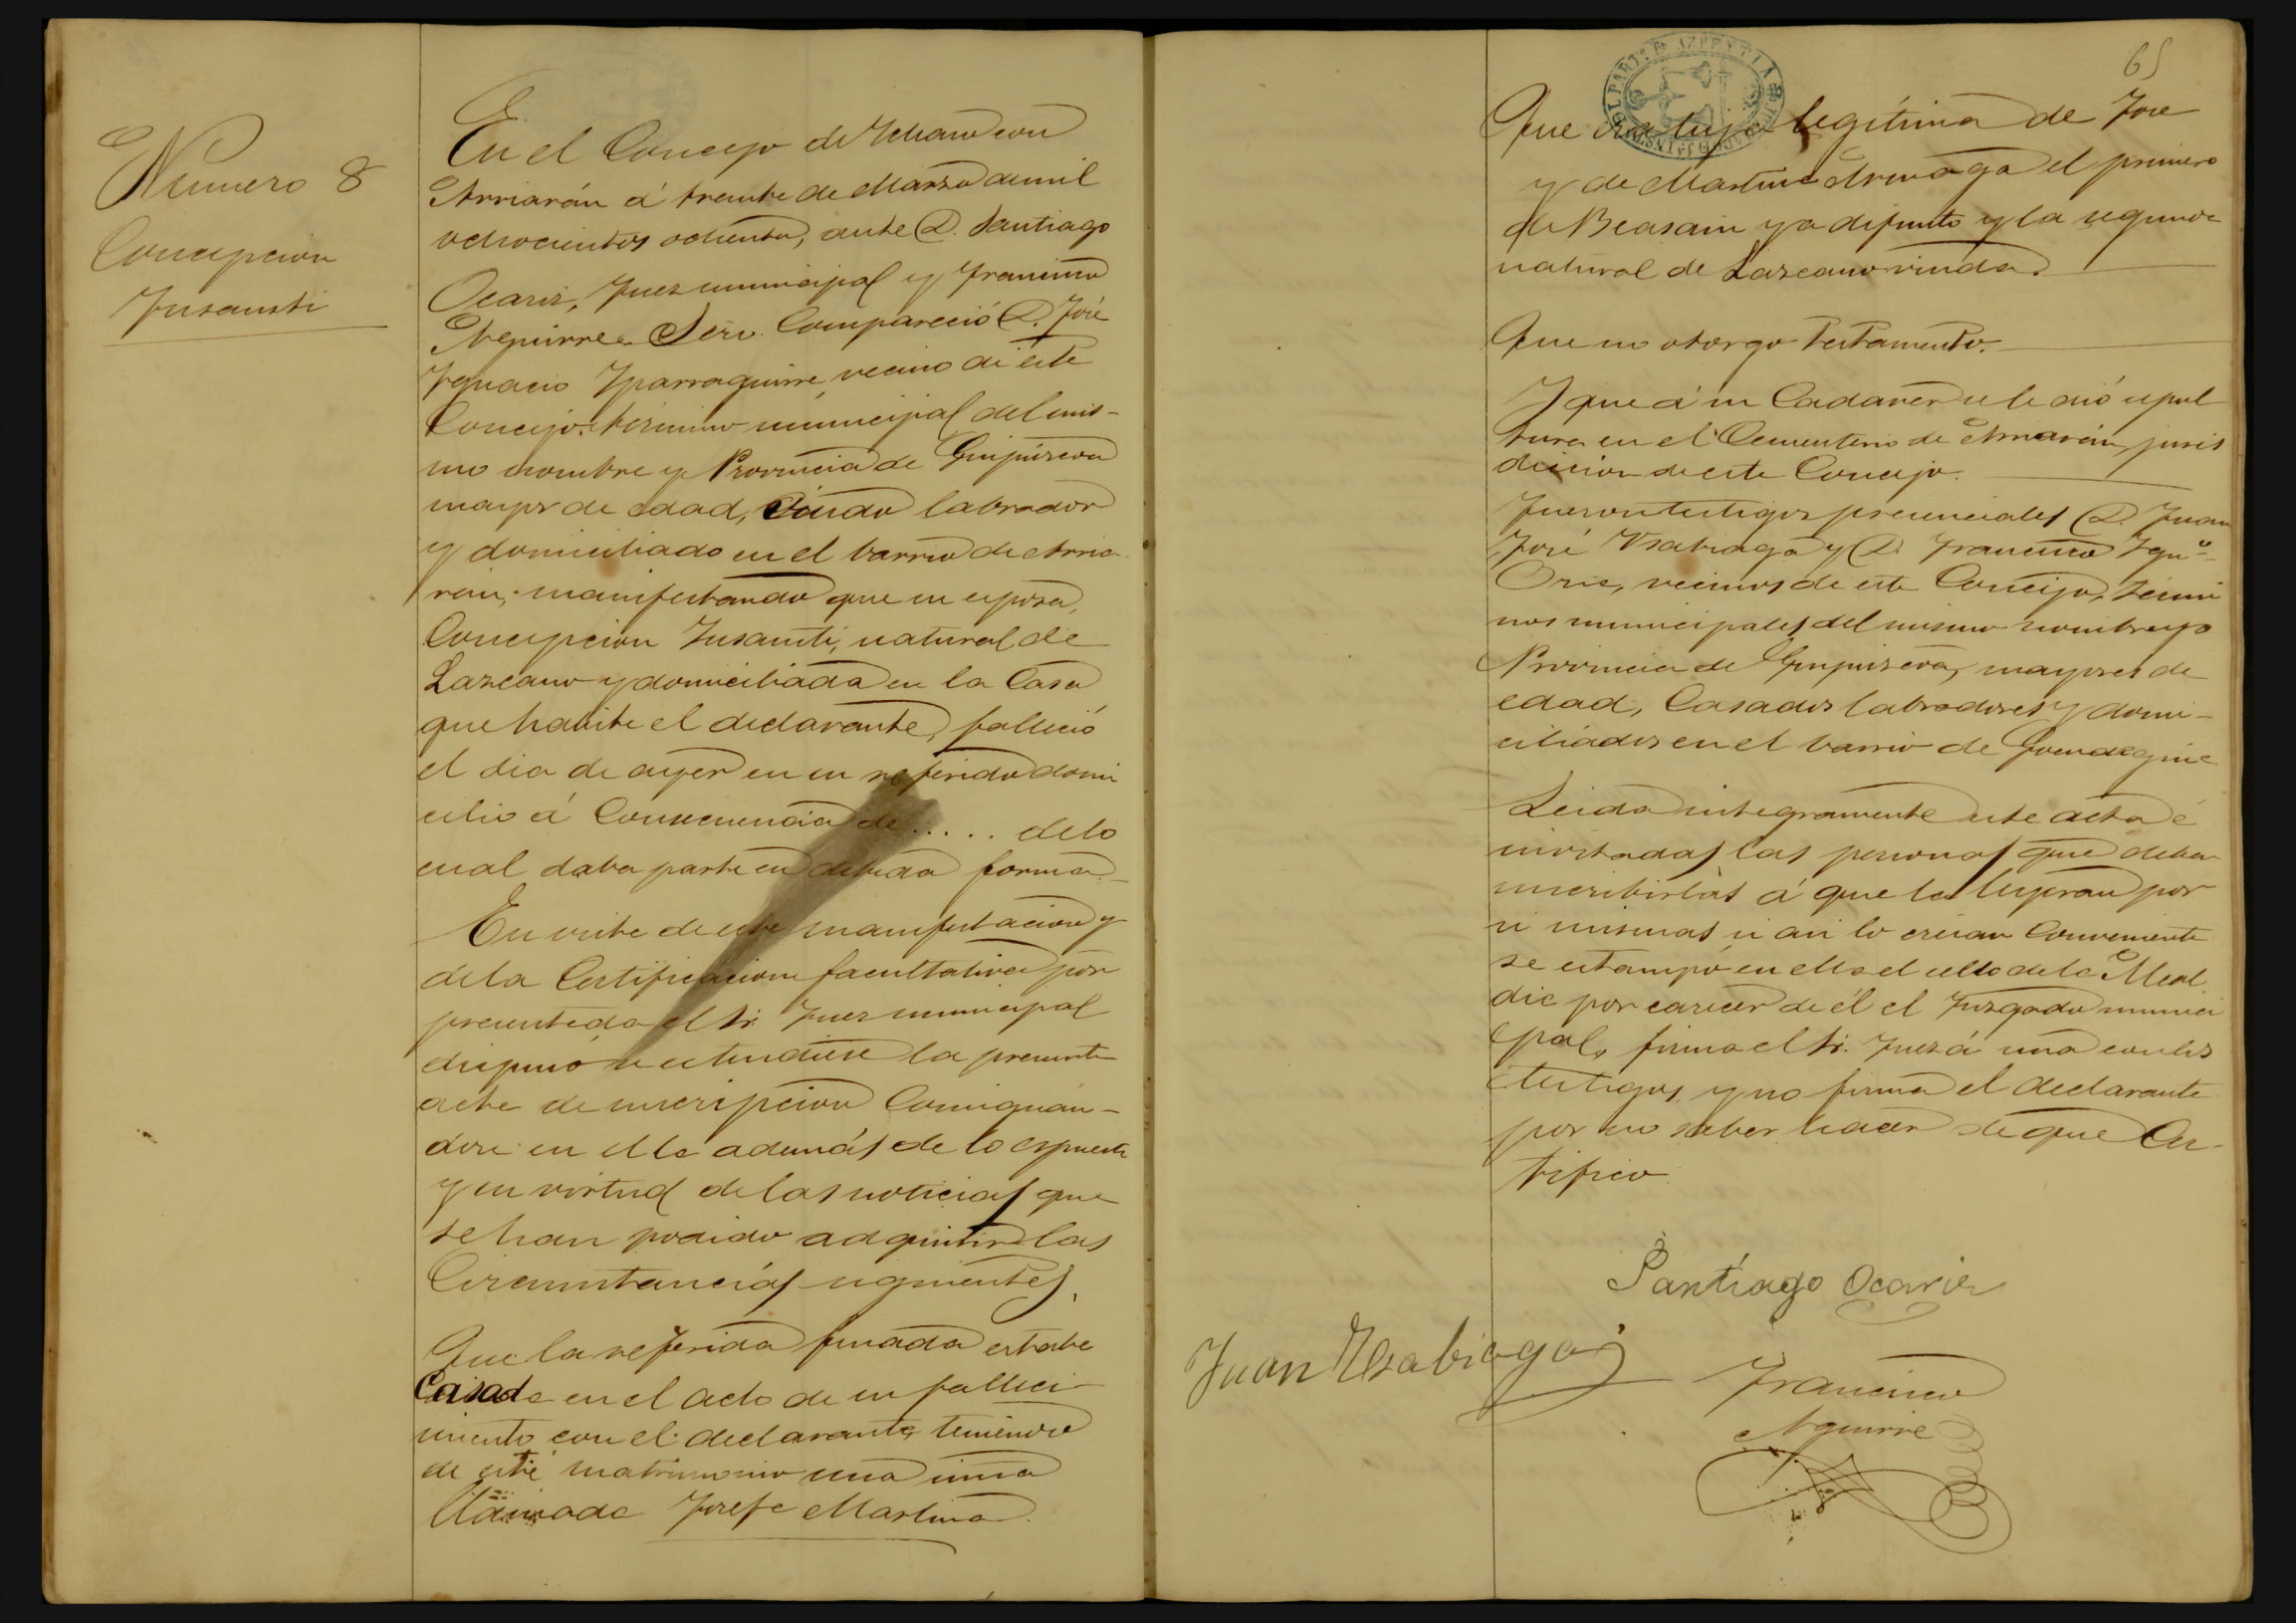 Numero 8
Concepcion
Insausti
En el Concejo de Ichaso con
Arriarán á treinta de Marzo de mil
ochocientos ochenta, ante D. Santiago
Ocariz, Juez municipal y Francisco
Aguirre Srio. Compareció D. José
Ygnacio Yparraguirre, vecino de este
Concejo, término municipal del mis-
mo nombre y Provincia de Guipúzcoa
mayor de edad, viudo labrador
y domiciliado en el barrio de Arria-
rán; manifestando que su esposa,
Concepcion Insausti, natural de
Lazcano y domiciliada en la Casa
que habita el declarante, falleció
el dia de ayer en su referido domi
cilio á Consecuencia de ..... de lo
cual daba parte en debida forma.
En vista de esta manifestacion y
de la Certificacion facultativa
presentada el Sr. Juez municipal
dispuso se estendiese la presente
acta de inscripcion Consignán-
dose en ella además de lo espuesto
y en virtud de las noticias que
se han podido adquirir las
Circunstancias siguientes,
Que la referida finada estaba
Casada en el acto de su falleci-
miento con el declarante, teniendo
de este matrimonio una
llamada Josefa Martina.
65
Que era hija legítima de José
y de Martina el primero
de Beasain ya difunto y la segunda
natural de Lazcano viuda.
Que no otorgo testamento.
Y que á su Cadaver se le dió sepul
tura en el Cementerio de Arriarán, juris
diccion de este Concejo.
Fueron testigos presenciales D. Juan
José Usabiaga y D. Francisco Ygnº
Oria, vecinos de este Concejo, térmi
nos municipales del mismo nombre y
Provincia de Guipuzcoa, mayores de
edad, Casados labradores y domi-
ciliados en el barrio de
Leida integramente este acta é
invitadas las personas que deben
suscribirlas á que la leyeran por
si mismas si asi lo creian Conveniente
se estampó en ella el sello de la Alcal
dia por carecer de él el Juzgado munici
pal, firma el Sr. Juez á una con los
testigos, y no firma el declarante
por no saber hacer de que Cer
tifico
Santiago Ocariz
Juan Usabiaga
Francisco
Aguirre